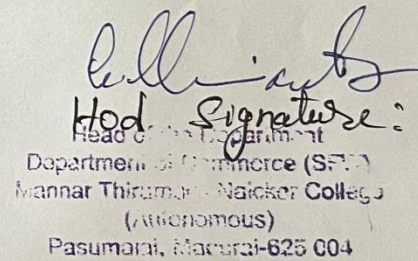 Hod Signature:
Head of the Department
Department of Commerce (SF)
Mannar Thirumalai Naicker College
(Autonomous)
Pasumalai, Madurai-625 004